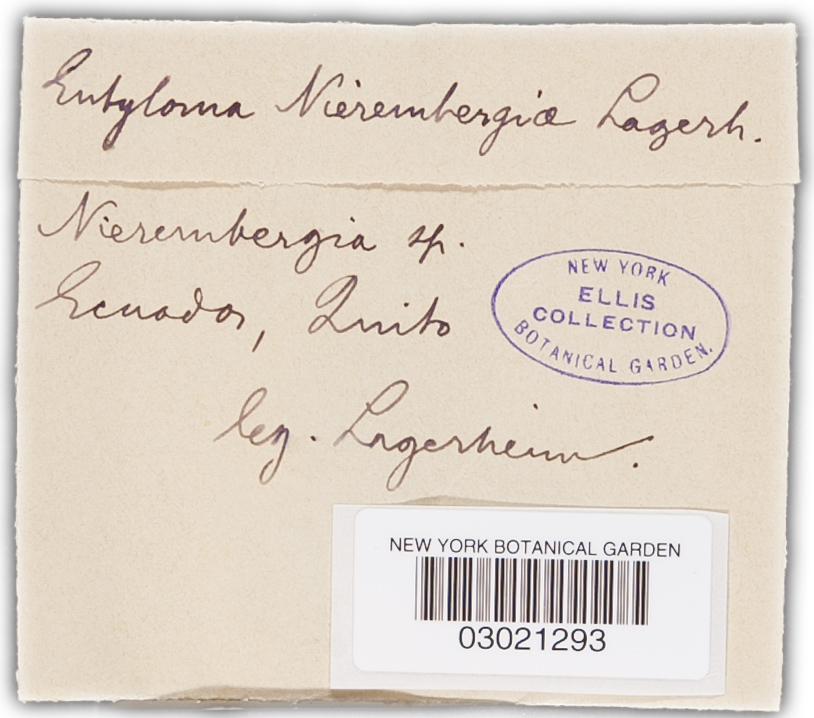 Entyloma Nierembergiæ Lagerh.
Nierembergia sp.
Ecuador, Quito
NEW YORK
ELLIS
COLLECTION
BOTANICAL GARDEN.
leg. Lagerheim.
NEW YORK BOTANICAL GARDEN
03021293